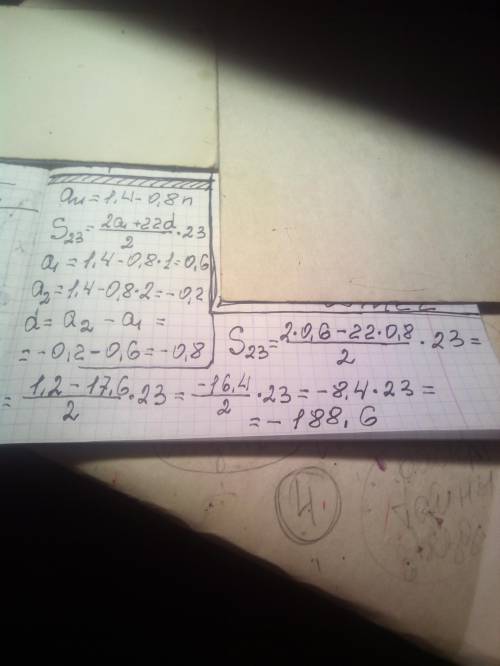 aₙ = 1,4 - 0,8n
S₂₃ = (2a₁ + 22d)/2 · 23
a₁ = 1,4 - 0,8 · 1 = 0,6
a₂ = 1,4 - 0,8 · 2 = -0,2
d = a₂ - a₁ =
= -0,2 - 0,6 = -0,8
S₂₃ = (2 · 0,6 - 22 · 0,8)/2 · 23 =
= (1,2 - 17,6)/2 · 23 = (-16,4)/2 · 23 = -8,4 · 23 =
= - 188,6
4